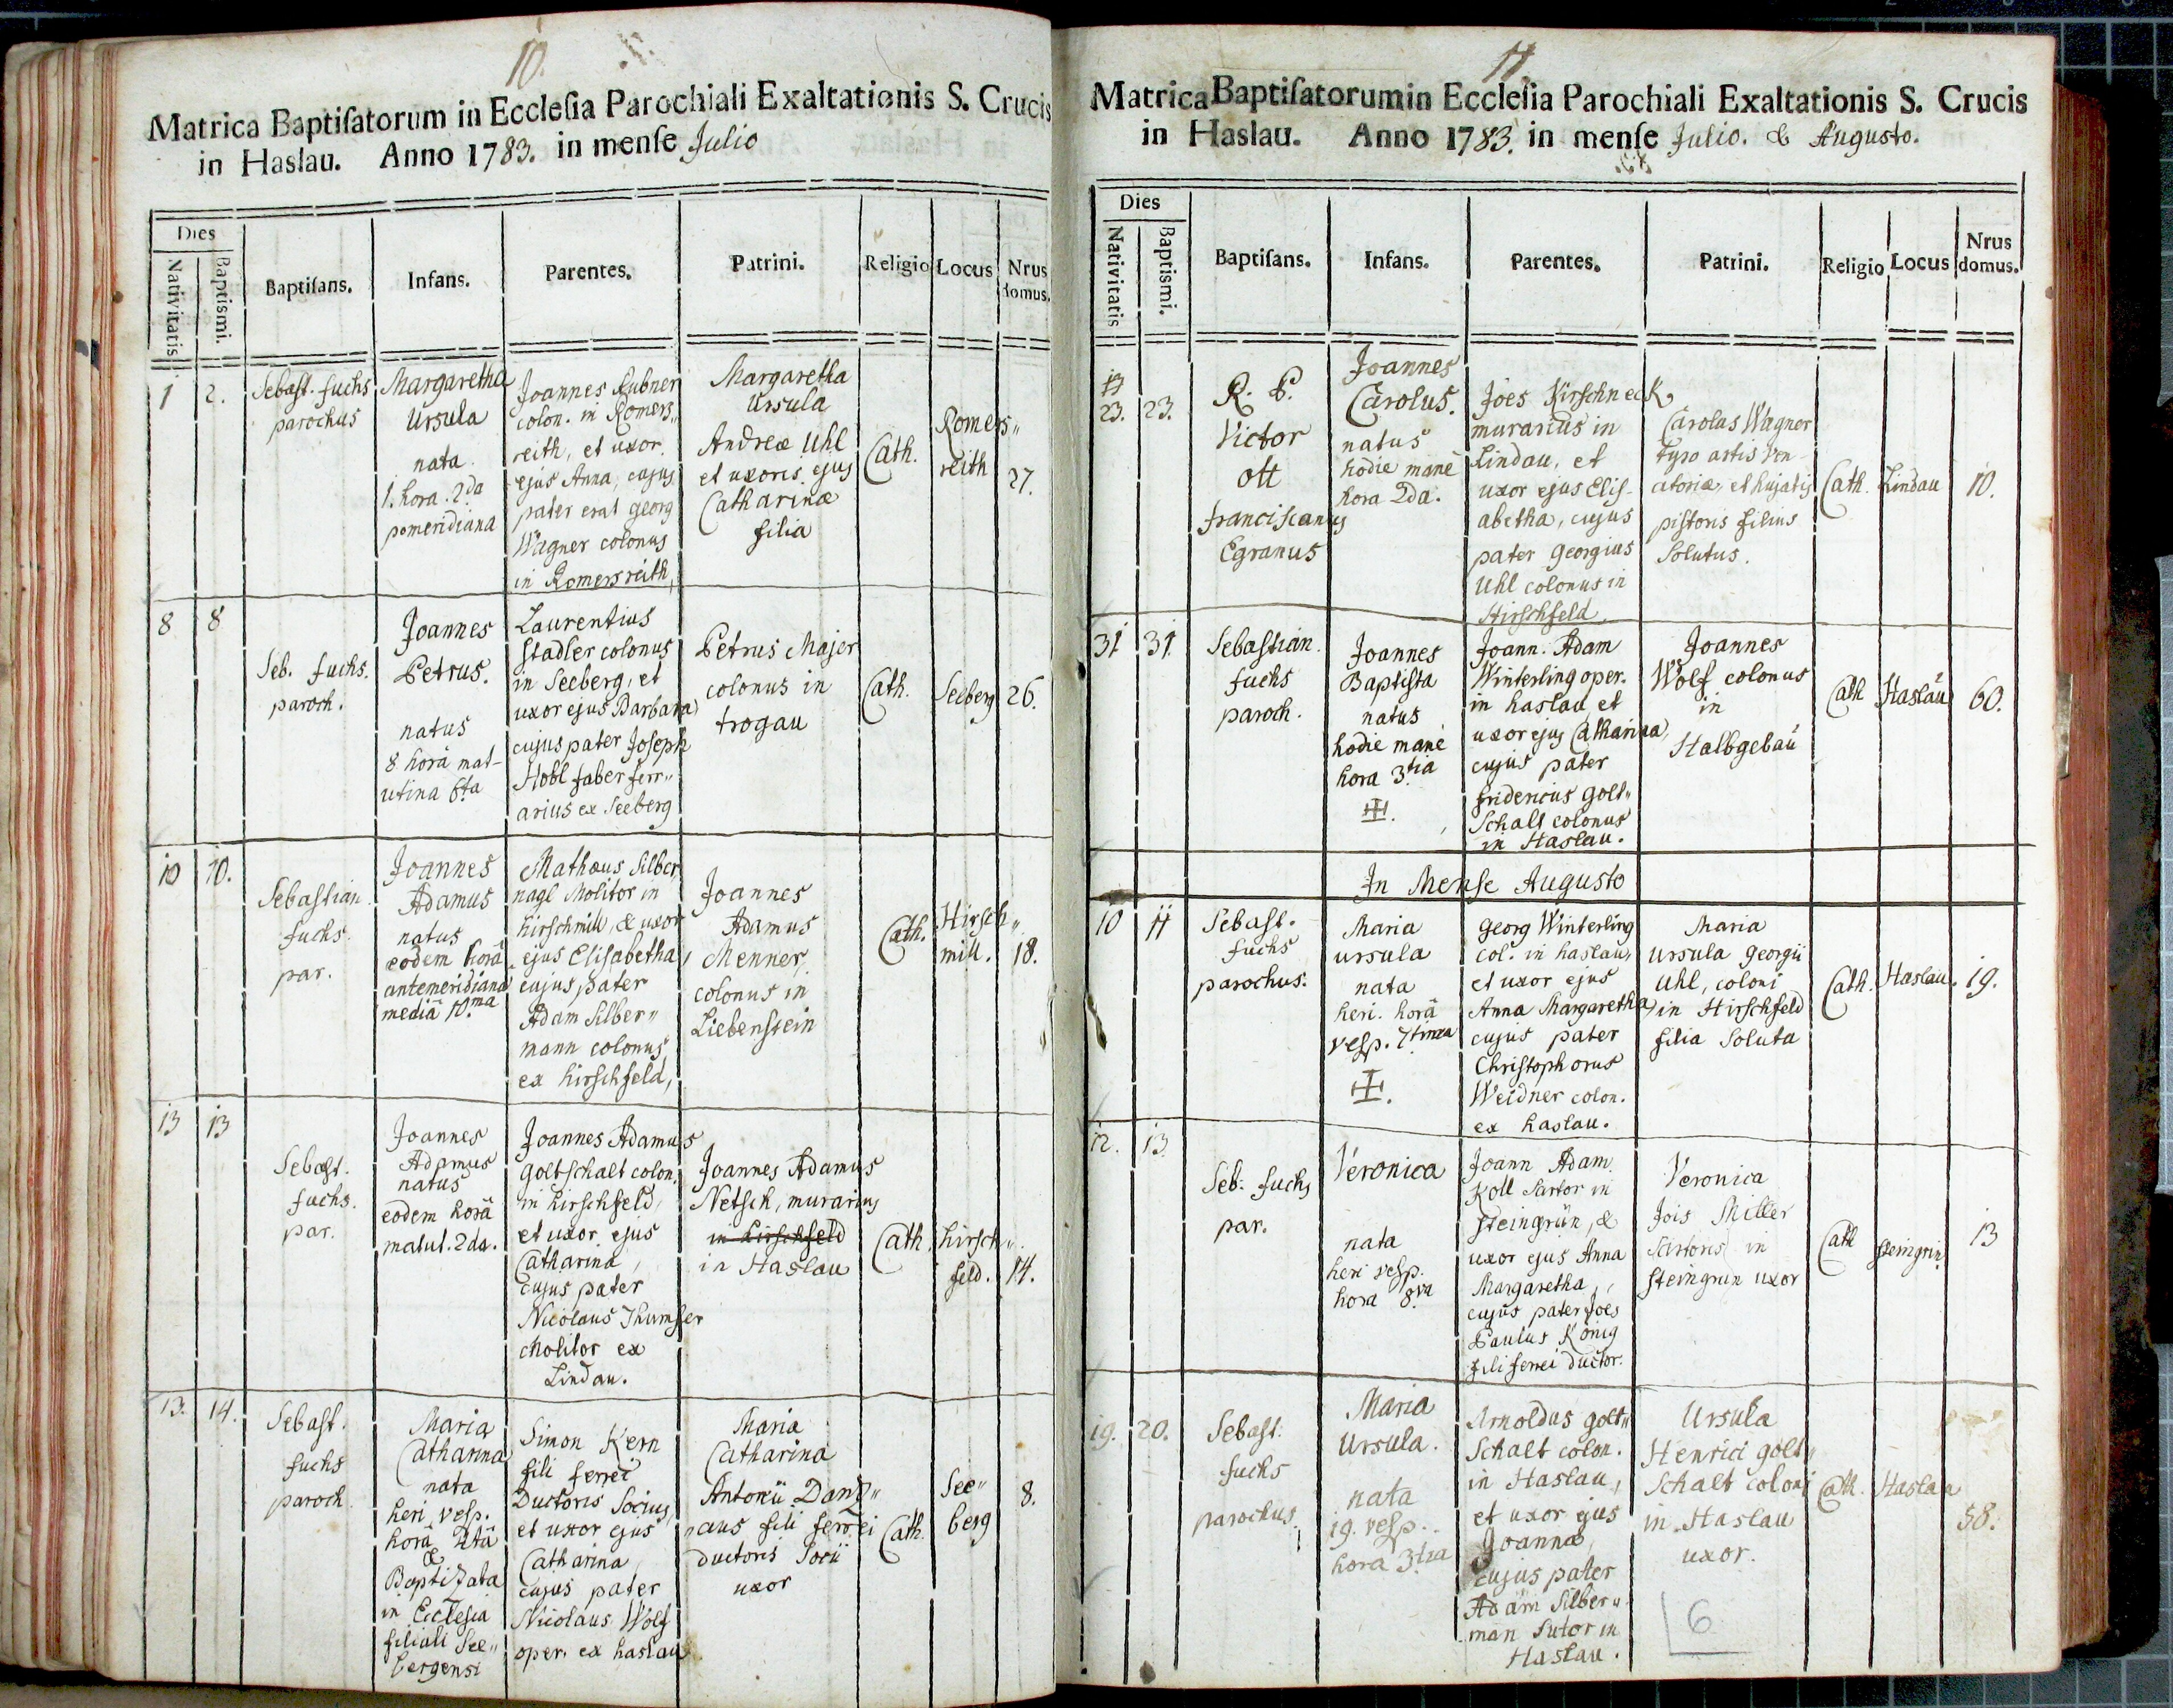 10.
Matrica Baptiſatorum in Eccleſia Parochiali Exaltationis S. Crucis
in Haslau. Anno 1783. in menſe Julio
Dies
Nativitatis
Baptismi.
Baptiſans.
Infans.
Parentes.
Patrini.
Religio
Locus
Nrus
domus.
1
2.
Sebast. fuchs
parochus
Margaretha
Ursula
nata
1. hora. 2da
pomeridiana
Joannes Rubner
colon. in Romers„
reith, et uxor
ejus Anna, cujus
pater erat georg
Wagner colonus
in Romersreith,
Margaretha
Ursula
Andreæ Uhl
et uxoris ejus
Catharinæ
filia
Cath.
Romers„
reith
27.
8
8
Seb. fuchs.
paroch.
Joannes
Petrus.
natus
8 horâ mat-
utina 6ta
Laurentius
Stadler colonus
in Seeberg, et
uxor ejus Barbara,
cujus pater Joseph
Hobl faber ferr„
arius ex Seeberg
Petrus Majer
colonus in
trogau
Cath.
Seeberg
26.
10
10.
Sebastian
fuchs.
par.
Joannes
Adamus
natus
eodem horâ
antemeridiana
mediâ 10.ma
Mathæus Silber
nagl Molitor in
hirschmill, & uxor
ejus Elisabetha,
cujus pater
Adam Silber„
mann colonus
ex hirschfeld,
Joannes
Adamus
Menner,
colonus in
Liebenstein
Cath.
Hirsch„
mill.
18.
13
13
Sebast.
fuchs.
par.
Joannes
Adamus
natus
eodem horâ
matut. 2da.
Joannes Adamus
goltschalt colon.
in hirschfeld,
et uxor ejus
Catharina,
cujus pater
Nicolaus Thumser
Molitor ex
Lindau.
Joannes Adamus
Netsch, murarius
in hirschfeld
in Haslau
Cath.
hirsch„
feld.
14.
13.
14.
Sebast.
fuchs
paroch.
Maria
Catharina
nata
heri vesp.
horâ
&
Baptizata
in Ecclesia
filiali See„
bergensi
Simon Kern
fili ferrei
Ductoris Socius,
et uxor ejus
Catharina
cujus pater
Nicolaus Wolf
oper. ex haslau
Maria
Catharina
Antonii
fili ferrei
ductoris Socii
uxor
Cath.
See„
berg
8.
11.
Matrica Baptiſatorum in Eccleſia Parochiali Exaltationis S. Crucis
in Haslau. Anno 1783. in menſe Julio. & Augusto.
Dies
Nativitatis
Baptismi.
Baptiſans.
Infans.
Parentes.
Patrini.
Religio
Locus
Nrus
domus.
23.
23.
R. P.
Victor
ott
franciscanus
Egranus
Joannes
Carolus.
natus
hodie manè
hora 2da.
Joes Kirschneck
murarius in
Lindau, et
uxor ejus Elis-
abetha, cujus
pater georgius
Uhl colonus in
Hirschfeld
Carolus Wagner
tyro artis ven-
atoriæ, et hujatis
pistoris filius
Solutus.
Cath.
Lindau
10.
31
31.
Sebastian.
fuchs
paroch.
Joannes
Baptista
natus
hodie manè
hora 3tia
Joann. Adam
Winterling oper.
in haslau et
uxor ejus Catharina,
cujus pater
fridericus golt„
schalt colonus
in Haslau.
Joannes
Wolf colonus
in
Halbgebäu
Cath
Haslau
60.
In Mense Augusto
10
11
Sebast.
fuchs
parochus.
Maria
ursula
nata
heri. horâ
vesp. 7tima
georg Winterling
col. in haslau,
et uxor ejus
Anna Margaretha,
cujus pater
Christophorus
Weidner colon.
ex haslau.
Maria
ursula georgii
Uhl, coloni
in Hirschfeld
filia Soluta
Cath.
Haslau.
19.
12.
13.
Seb. fuchs
par.
Veronica
nata
heri vesp.
hora 8va
Joann Adam
Koll Sartor in
steingrün, &
uxor ejus Anna
Margaretha,
cujus pater Joes
Paulus König
fili ferrei ductor.
Veronica
Jois Miller
Sartoris in
steingrun uxor
Cath
steingrün
13
19.
20.
Sebast.
fuchs
parochus
Maria
Ursula.
nata
19. vesp.
hora 3tia
Arnoldus golt„
schalt colon.
in Haslau,
et uxor ejus
Joanna,
cujus pater
Adam Silber„
man Sutor in
Haslau.
Ursula
Henrici golt„
schalt coloni
in Haslau
uxor.
Cath.
Haslau
58.
6